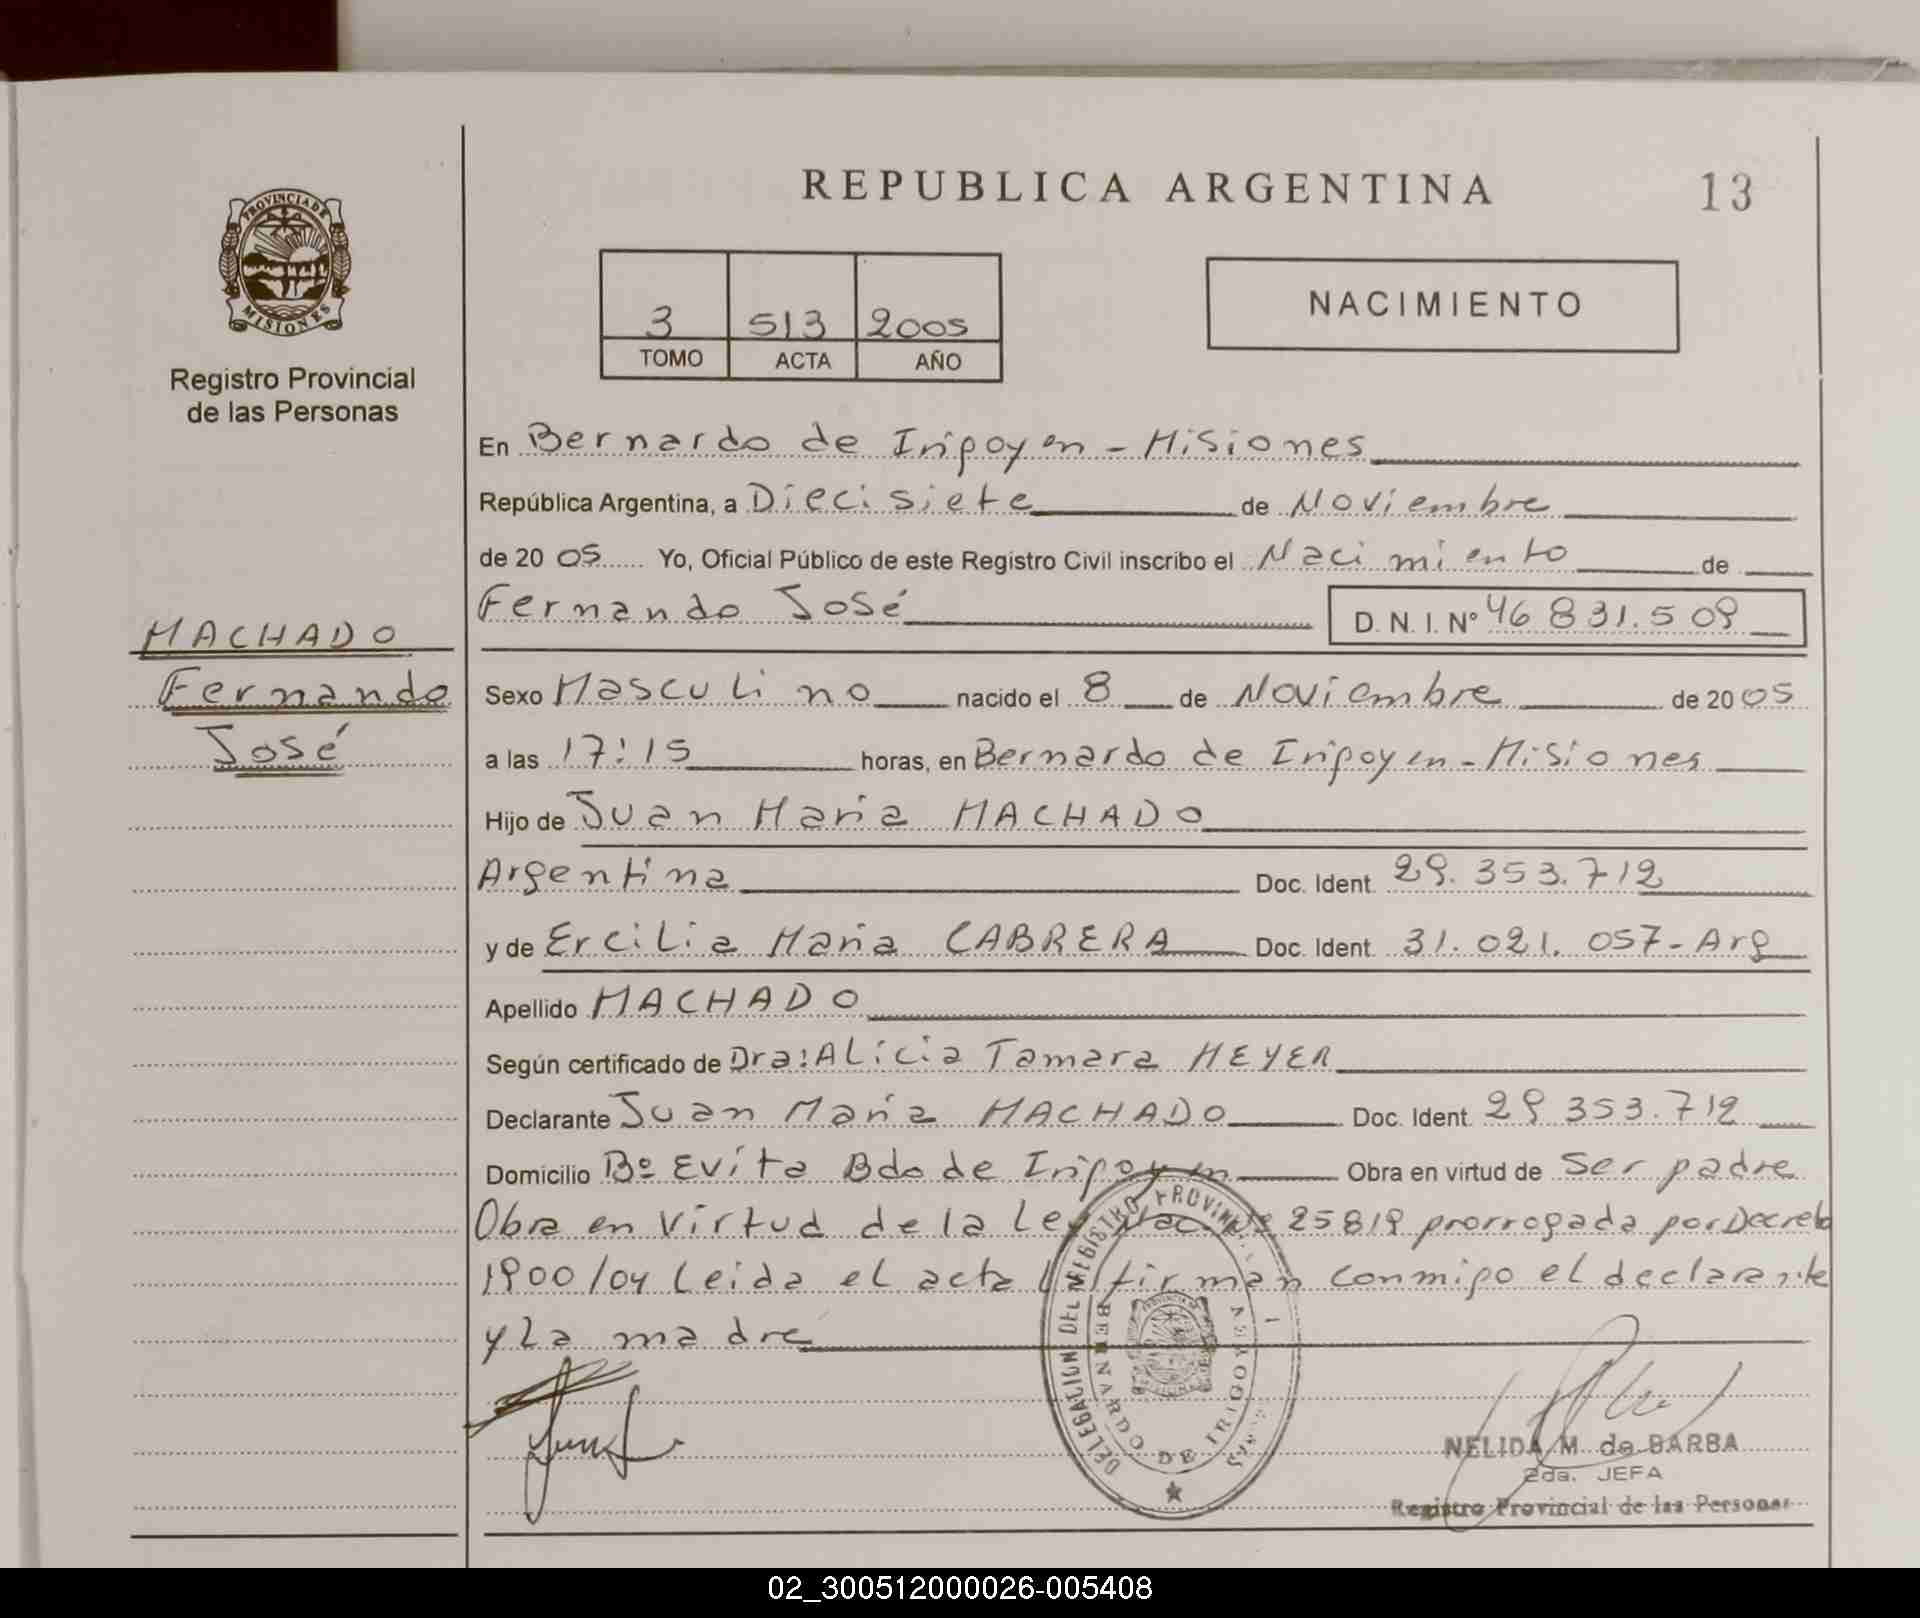 REPUBLICA ARGENTINA 13
PROVINCIA DE
MISIONES
Registro Provincial
de las Personas
3 513 2005
TOMO ACTA AÑO
NACIMIENTO
En Bernardo de Irigoyen - Misiones
República Argentina, a Diecisiete de Noviembre
de 20 05 Yo, Oficial Público de este Registro Civil inscribo el Nacimiento de
Fernando José D. N. I. Nº 46 831.509
MACHADO
Fernando
José
Sexo Masculino nacido el 8 de Noviembre de 20 05
a las 17:15 horas, en Bernardo de Irigoyen - Misiones
Hijo de Juan Maria MACHADO
Argentina Doc. Ident. 29.353.712
y de Ercilia Maria CABRERA Doc. Ident. 31.021.057 - Arg
Apellido MACHADO
Según certificado de Dra: Alicia Tamara MEYER
Declarante Juan Maria MACHADO Doc. Ident. 29 353.712
Domicilio Bº Evita Bdo de Irigoyen Obra en virtud de ser padre
Obra en virtud de la Ley Nac Nº 25819 prorrogada por Decreto
1900/04 Leida el acta firman conmigo el declarante
y La madre
DELEGACION DEL REGISTRO PROVINCIAL
BERNARDO DE IRIGOYEN
NELIDA M. de BARBA
2da. JEFA
Registro Provincial de las Personas
02_300512000026-005408